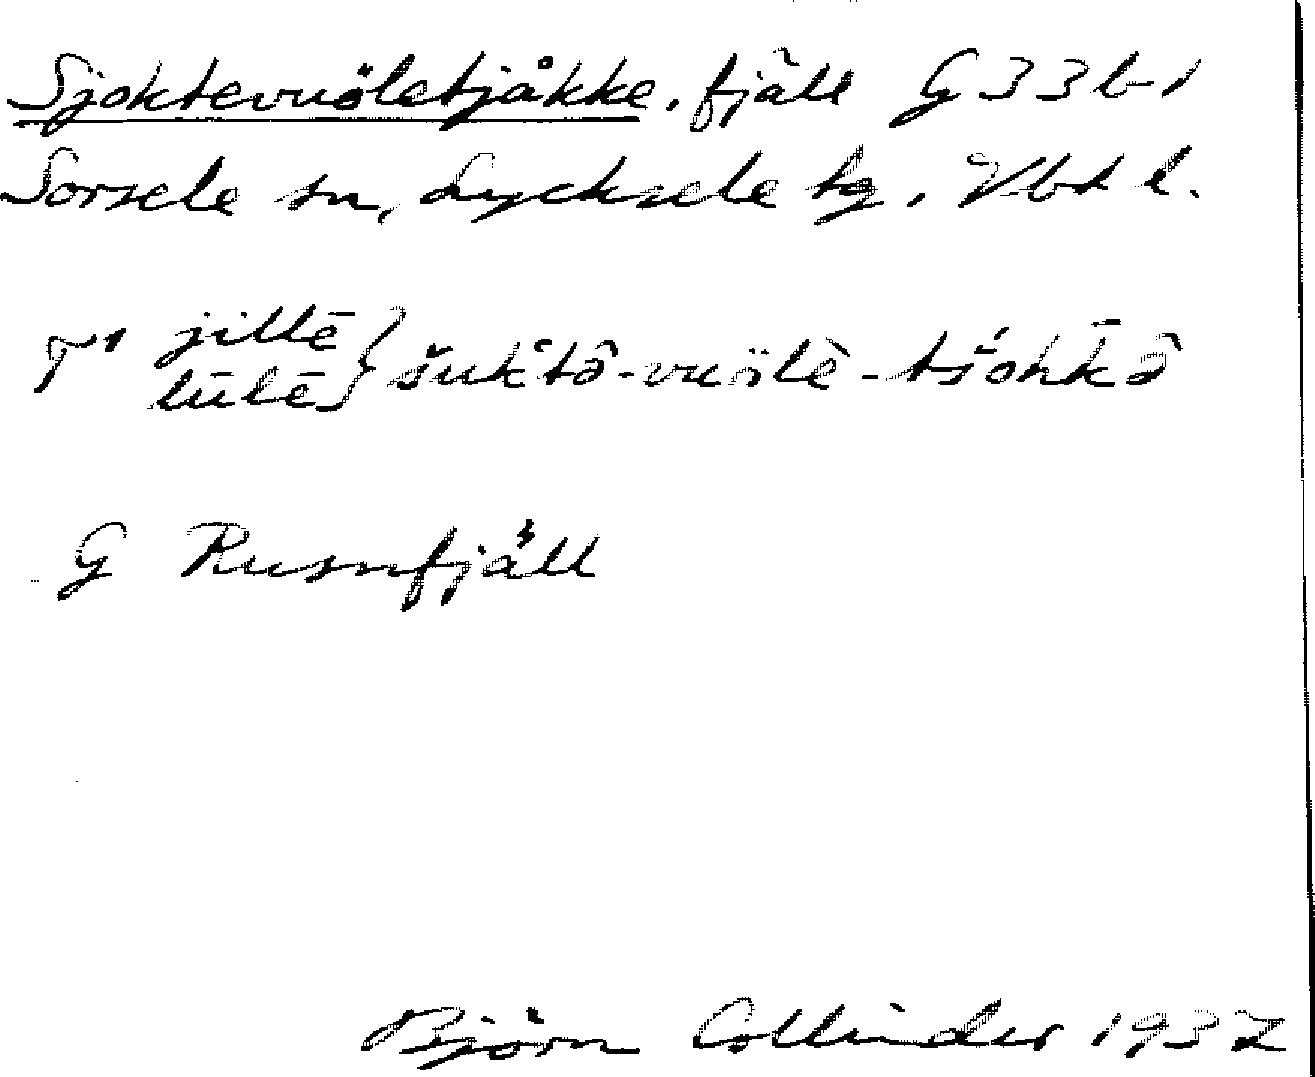 Sjoktevuöletjåkke, fjäll G 33 b-1
Sorsele sn, Lycksele tg. Vbt l.
T1 jillē } šuktâ-vuölē-tšåhkâ
lulē
G Rusnfjäll
Björn Collinder 1937